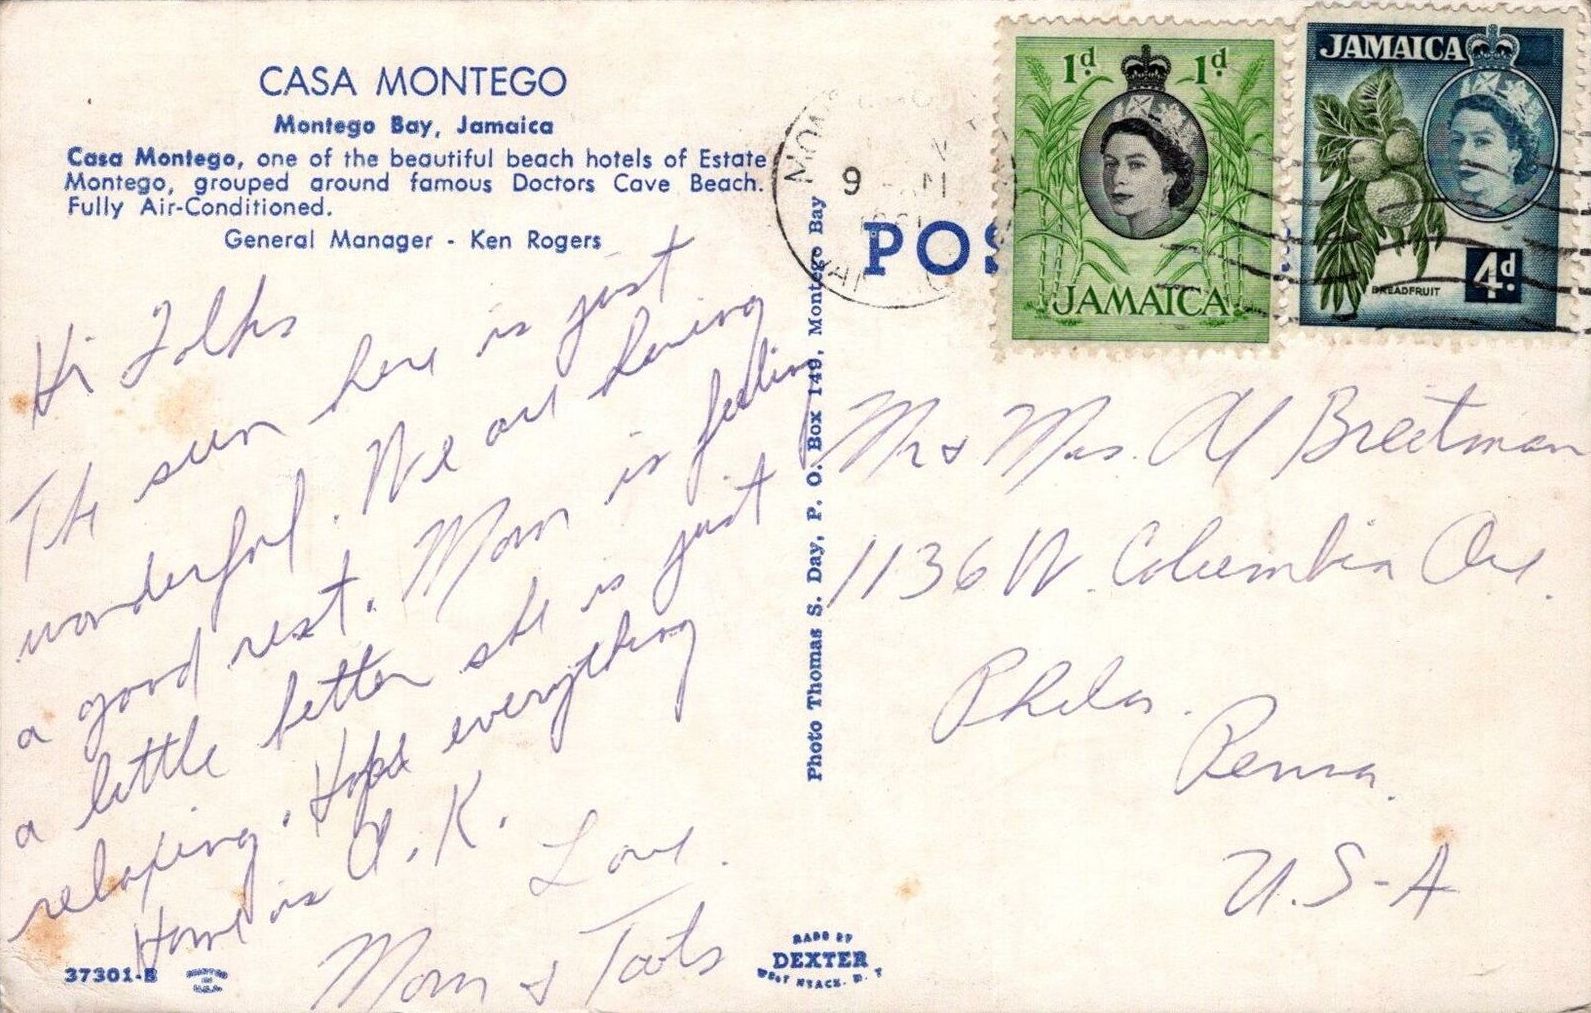 CASA MONTEGO
Montego Bay, Jamaica
Casa Montego, one of the beautiful beach hotels of Estate
Montego, grouped around famous Doctors Cave Beach.
Fully Air-Conditioned.
General Manager - Ken Rogers
Hi Folks
The sun here is just
wonderful. We are having
a good rest. Mom is feeling
a little better she is just
relaxing. Hope everything
Home is O.K.
Love.
Mom & Toots
37301-B
Photo Thomas S. Day, P. O. Box 149, Montego Bay
MADE BY
DEXTER
WEST NYACK, N. Y.
9
POS
1d 1d
JAMAICA
JAMAICA
BREADFRUIT
4d
Mr & Mrs. Al Breitman
1136 W. Columbia Ave.
Phila.
Penna.
U.S-A